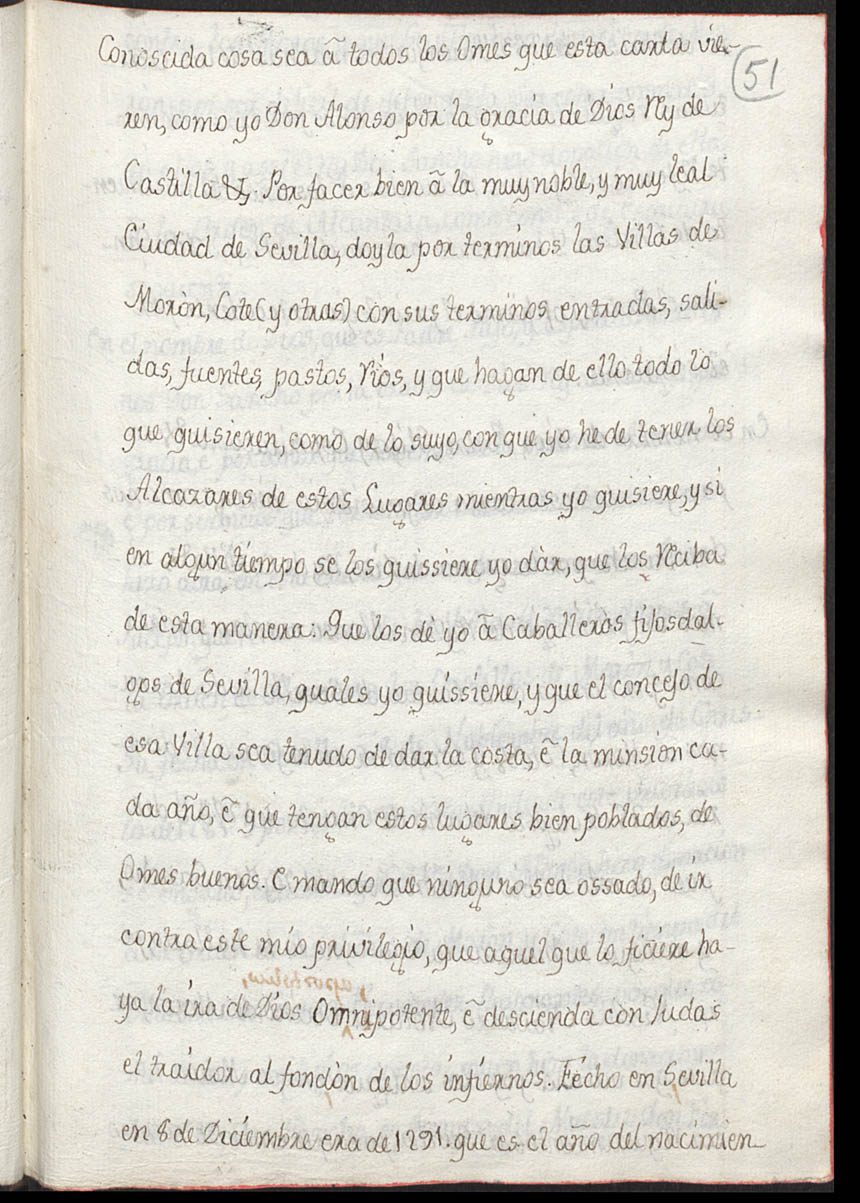 Conoscida cosa sea â todos los Omes que esta carta vie-
51
ren, como yo Don Alonso por la gracia de Dios Rey de
Castilla &. Por facer bien â la muy noble, y muy leal
Ciudad de Sevilla, doyla por terminos las Villas de
Moròn, Cote (y otras) con sus terminos, entradas, sali-
das, fuentes, pastos, Ríos, y que hagan de ello todo lo
que quisieren, como de lo suyo, con que yo he de tener los
Alcazares de estos Lugares mientras yo quisiere, y si
en algun tiempo se los quissiere yo dàr, que los Reciba
de esta manera: Que los dè yo â Caballeros fijosdal-
gos de Sevilla, quales yo quissiere, y que el concejo de
esa Villa sea tenudo de dar la costa, ê la minsion ca-
da año, ê que tengan estos lugares bien poblados, de
Omes buenos. E mando que ninguno sea ossado, de ir
contra este mio privilegio, que aquel que lo ficiere ha-
ya la ira de Dios Omnipotente, ê descienda con Judas
el traidor al fondòn de los infiernos. Fécho en Sevilla
en 8 de Diciembre era de 1291. que es el año del nacimien